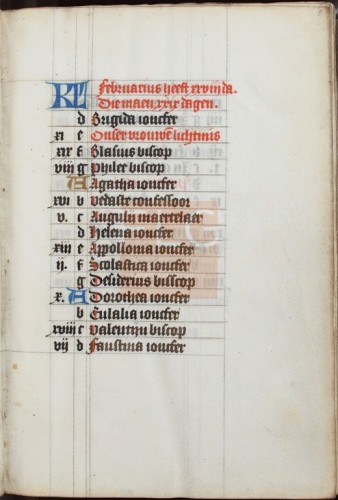 KL Februarius heeft xxviii da.
Die maen xxix dagen.
d Brigida ioncfer
xi e Onser vrouwe lichtmis
xix f Blasius biscop
viii g Philee biscop
A Agatha ioncfer
xvi b Vedaste confessoor
v. c Augulij maertelaer
d Helena ioncfer
xiii e Appollonia ioncfer
ij. f Scolastica ioncfer
g Desiderius bisscop
x. A Dorothea ioncfer
b Eulalia ioncfer
xviii c Valentijn biscop
vij d Faustina ioncfer